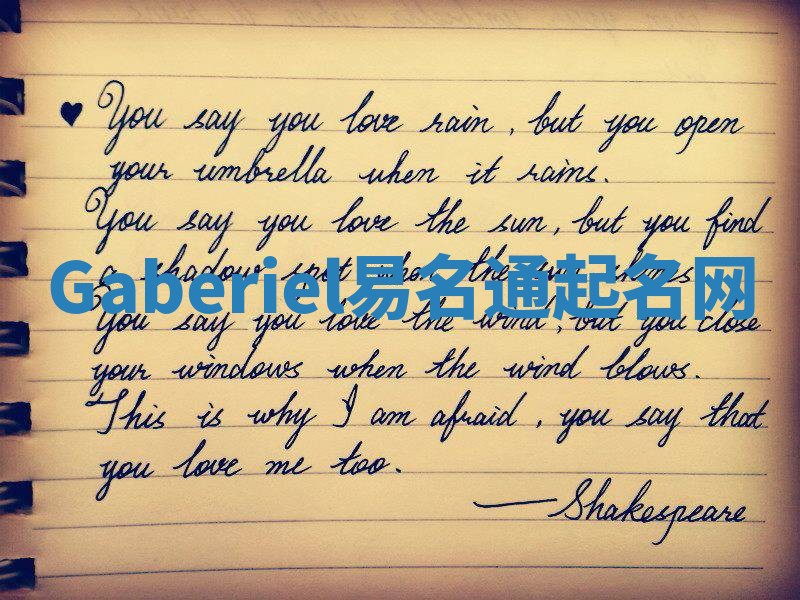 ♥ You say you love rain, but you open
your umbrella when it rains.
You say you love the sun, but you find
a shadow spot when the sun shines
Gaberiel易名通起名网
You say you love the wind, but you close
your windows when the wind blows.
This is why I am afraid, you say that
you love me too.
—Shakespeare